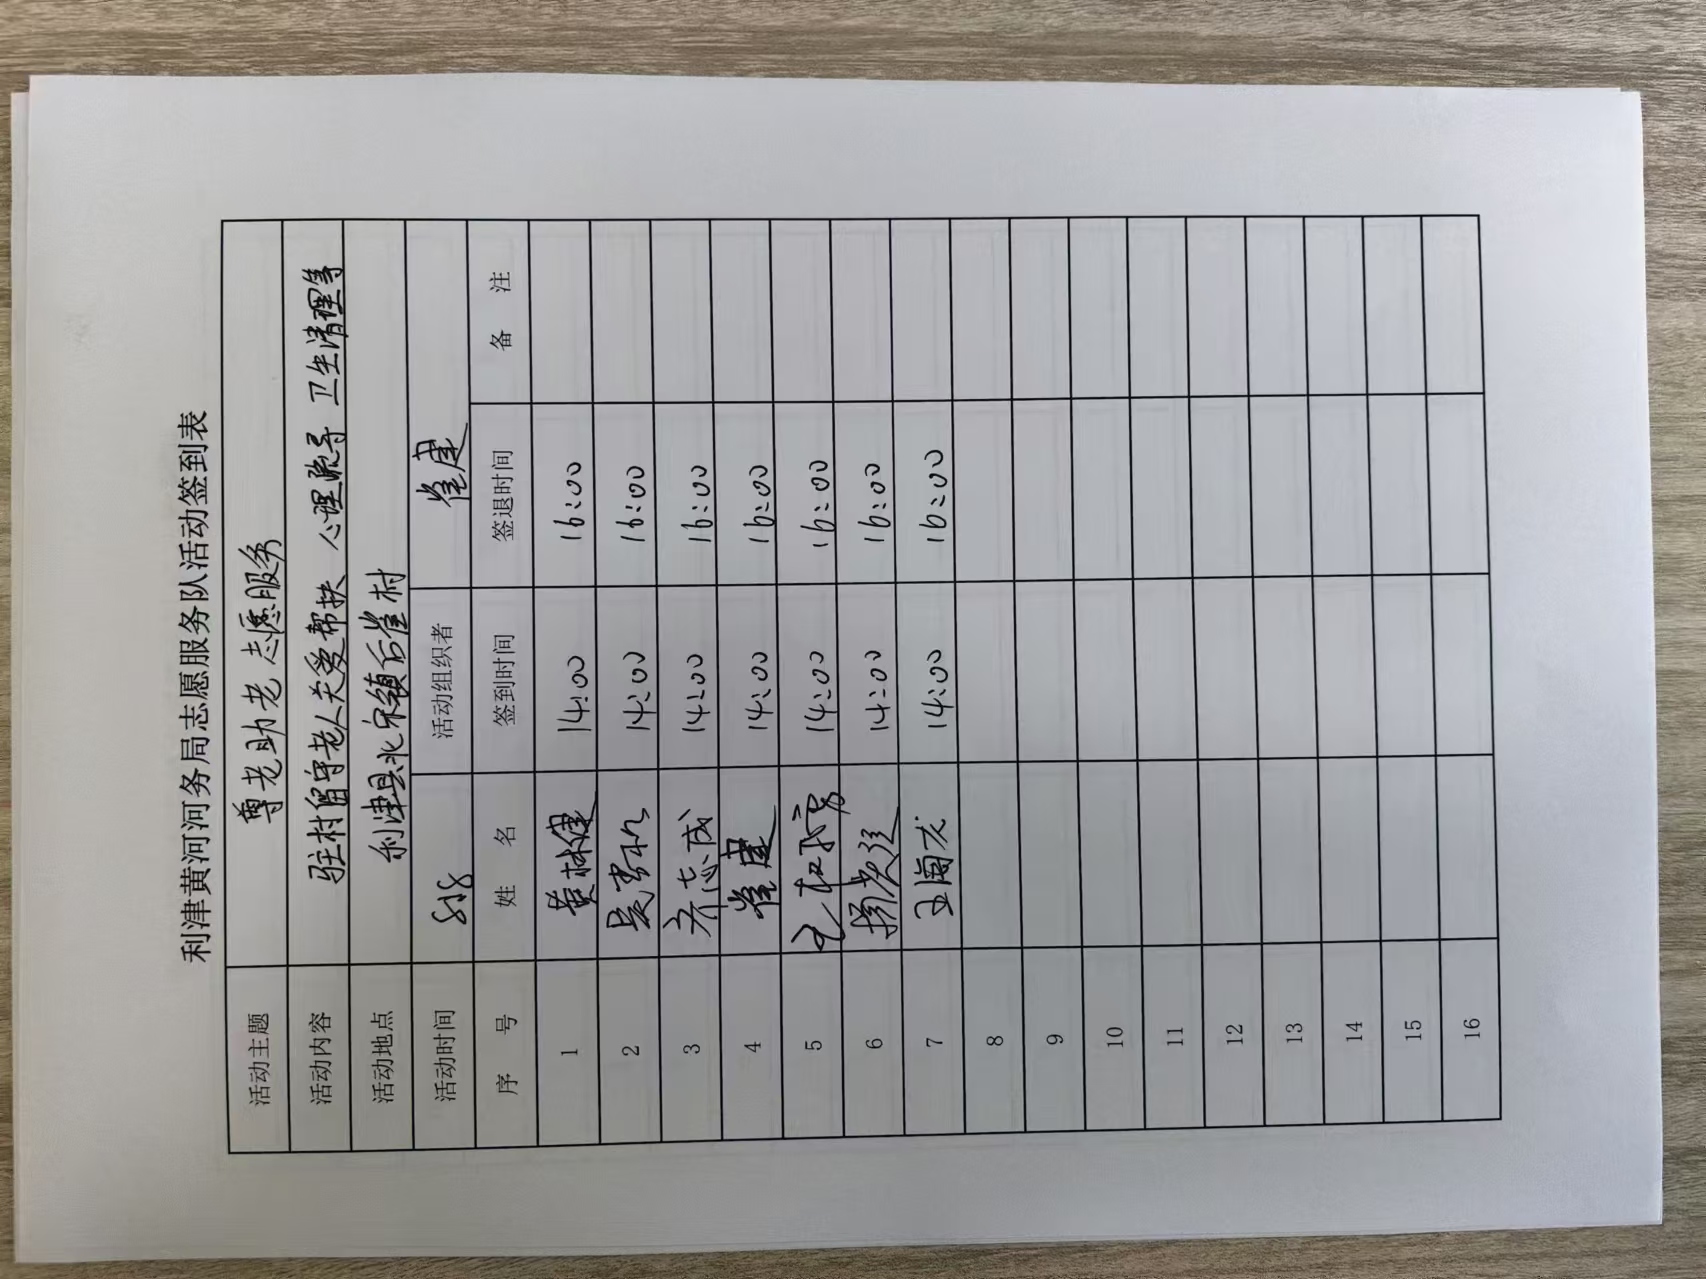 利津黄河河务局志愿服务队活动签到表
活动主题 尊老助老志愿服务
活动内容 驻村留守老人关爱帮扶 心理疏导 卫生清理等
活动地点 利津县北宋镇后崔村
活动时间 活动组织者 崔建
序 号 姓 名 签到时间 签退时间 备 注
1 黄林健 14:00 16:00
2 14:00 16:00
3 14:00 16:00
4 崔建 14:00 16:00
5 14:00 16:00
6 14:00 16:00
7 王海龙 14:00 16:00
8
9
10
11
12
13
14
15
16